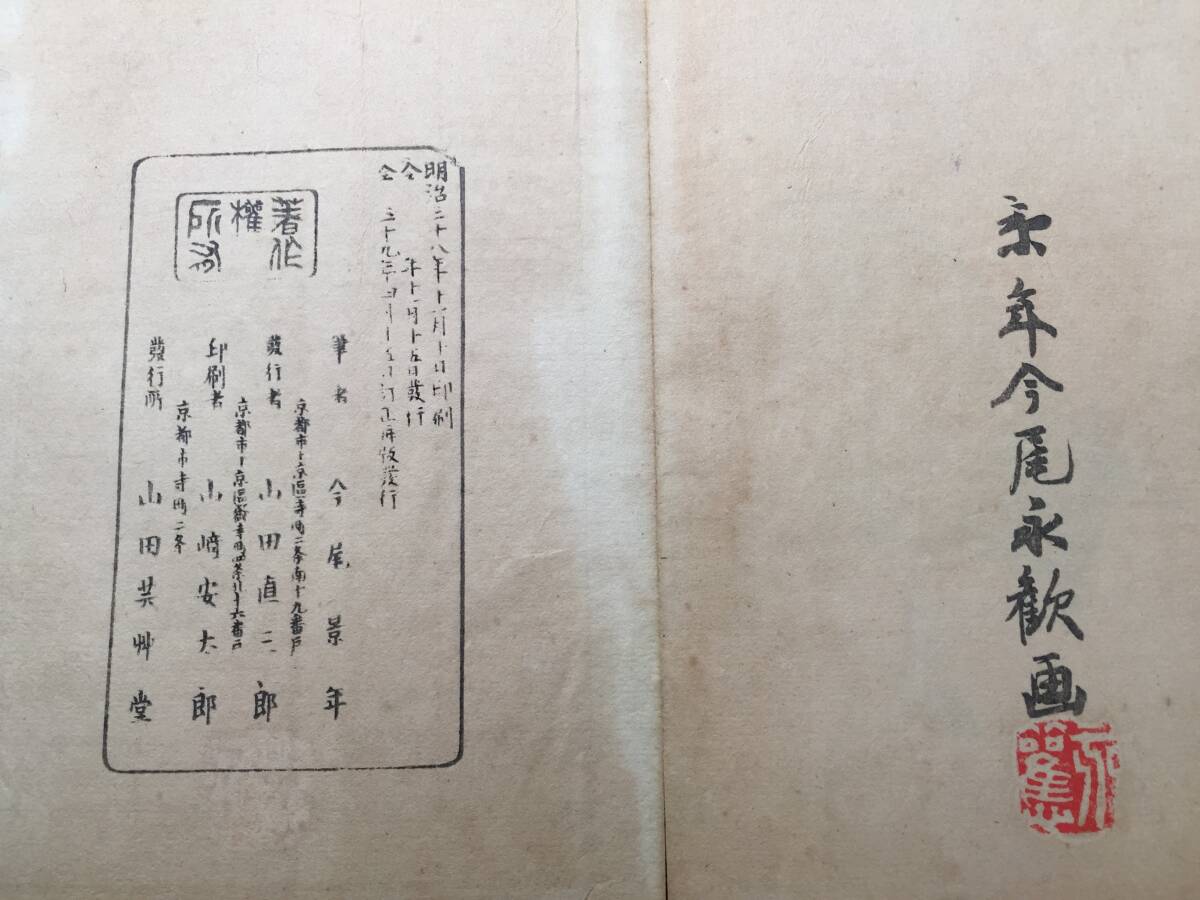 景年今尾永歓画
永歓
明治二十八年十一月十日印刷
仝 年十一月十五日發行
仝 三十九年四月十五日訂正再版發行
著作權所有
筆者 今尾景年
京都市上京區寺町二条南十九番戸
發行者 山田直三郎
印刷者 山﨑安太郎
京都市寺町二条
發行所 山田芸艸堂